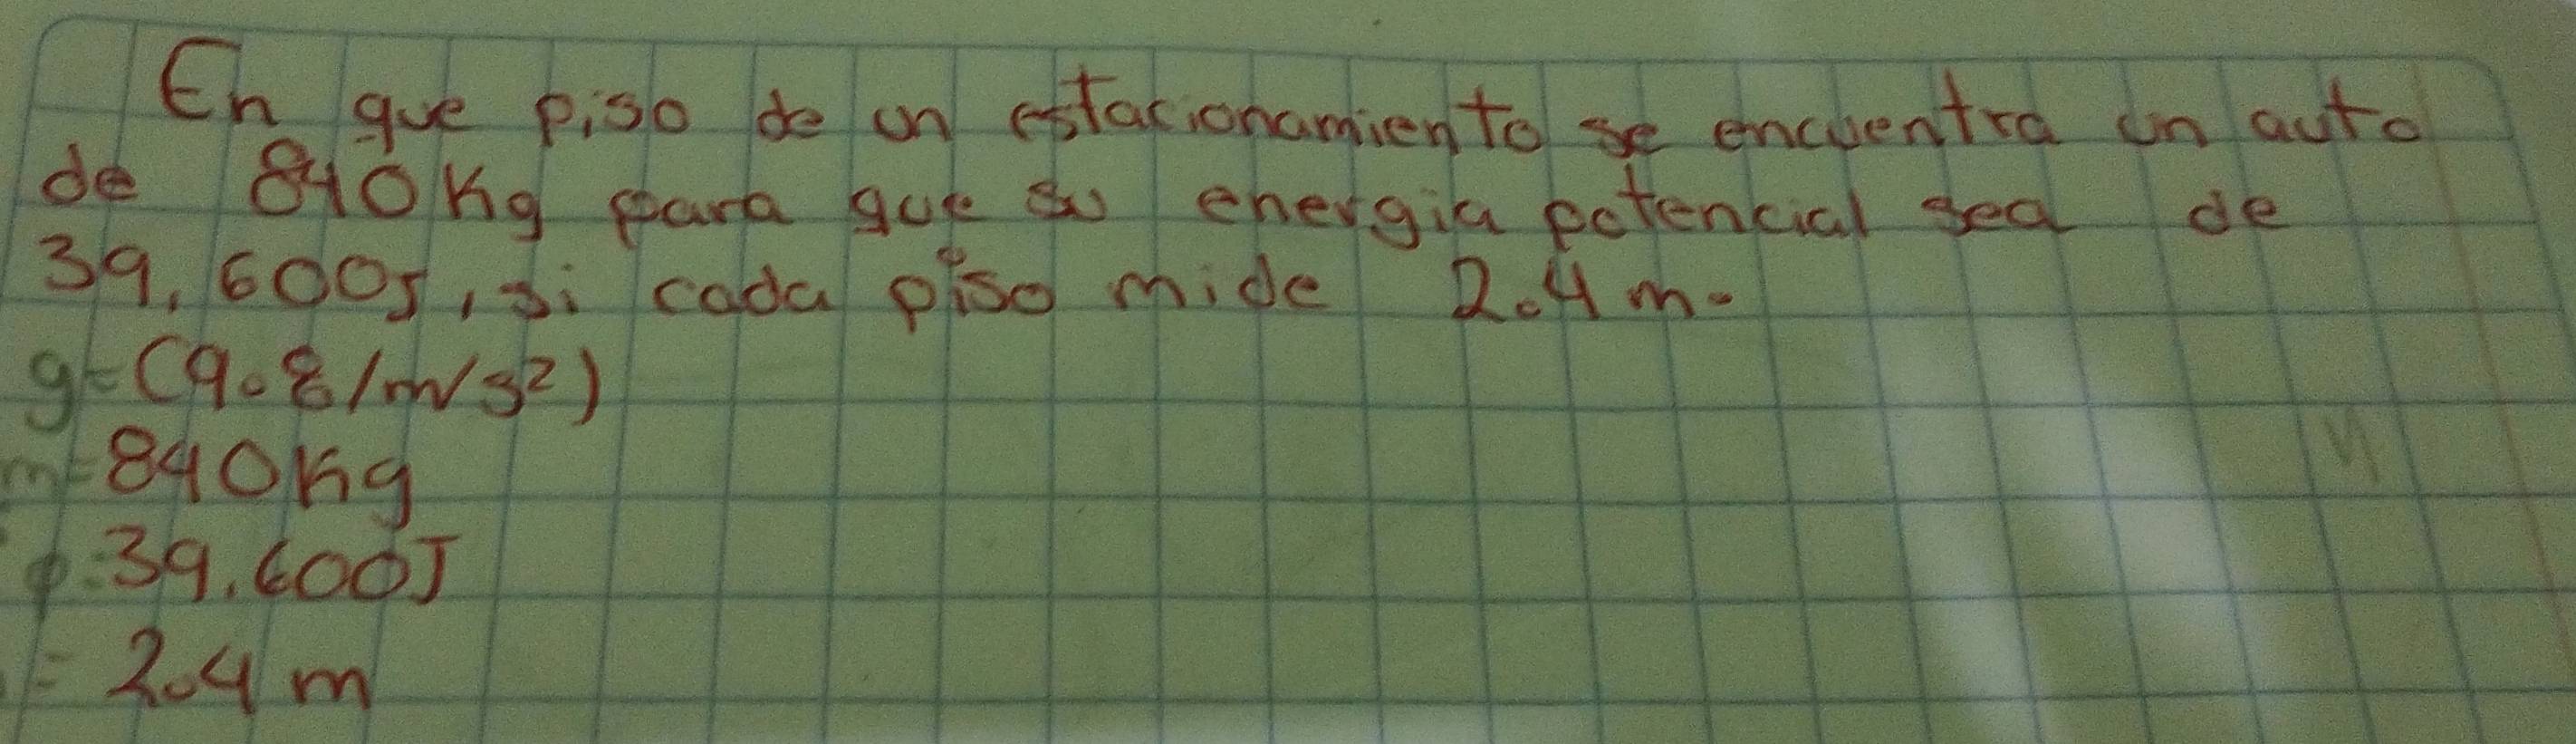 En que piso de un estacionamiento se encuentra un auto
de 840Kg para que su energia potencial sea de
39,600J, si cada piso mide 2.4 m.
g=(9.8/m/s²)
m=840Kg
39,600J
= 2.4 m